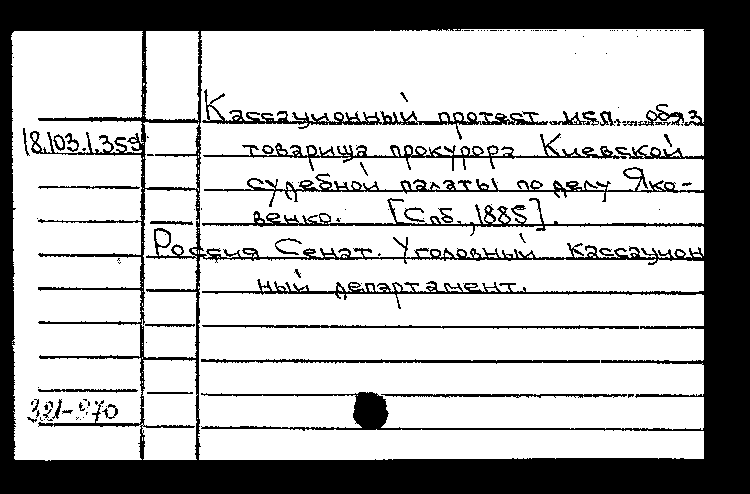 Кассационный протест исп. обяз
18.103.1.359
товарища прокурора Киевской
судебной палаты по делу Яко-
венко. [Спб., 1885].
Россия Сенат. Уголовный кассацион
ный департамент.
321-970